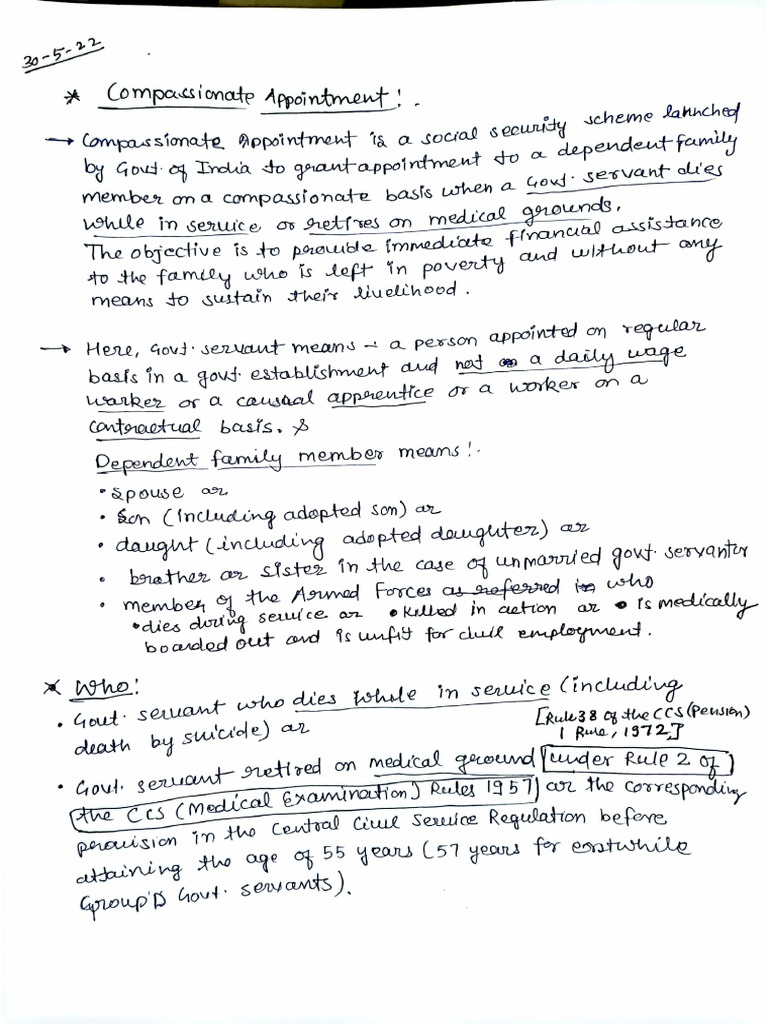 30-5-22
* Compassionate Appointment:.
→ Compassionate Appointment is a social security scheme launched
by Govt. of India to grant appointment to a dependent family
member on a compassionate basis when a Govt. servant dies
while in service or retires on medical grounds.
The objective is to provide immediate financial assistance
to the family who is left in poverty and without any
means to sustain their livelihood.
→ Here, Govt. servant means → a person appointed on regular
basis in a govt. establishment and not a daily wage
worker or a causual apprentice or a worker on a
contractual basis. &
Dependent family member means:.
• Spouse or
• Son (including adopted son) or
• daught (including adopted daughter) or
• brother or sister in the case of unmarried govt. servantor
• member of the Armed Forces as referred in who
• dies during service or • killed in action or • is medically
boarded out and is unfit for civil employment.
* Who:
• Govt. servant who dies while in service (including
death by suicide) or
[Rule 38 of the CCS (Pension)
Rule, 1972]
• Govt. servant retired on medical ground [under Rule 2 of
the CCS (Medical Examination) Rules 1957] or the corresponding
provision in the Central Civil Service Regulation before
attaining the age of 55 years (57 years for erstwhile
Group 'D Govt. servants).